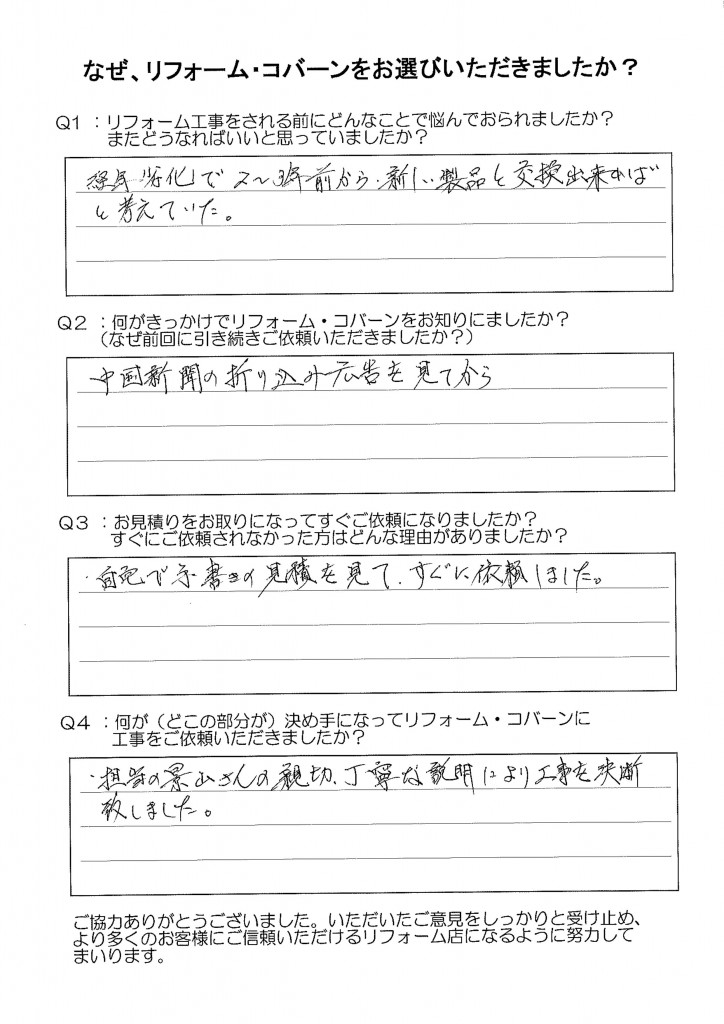 なぜ、リフォーム・コバーンをお選びいただきましたか？
Q1 ：リフォーム工事をされる前にどんなことで悩んでおられましたか？
またどうなればいいと思っていましたか？
経年劣化で2～3年前から、新しい製品と交換出来れば
と考えていた。
Q2 ：何がきっかけでリフォーム・コバーンをお知りにましたか？
（なぜ前回に引き続きご依頼いただきましたか？）
中国新聞の折り込み広告を見てから
Q3 ：お見積りをお取りになってすぐご依頼になりましたか？
すぐにご依頼されなかった方はどんな理由がありましたか？
・自宅で手書きの見積を見て、すぐに依頼しました。
Q4 ：何が（どこの部分が）決め手になってリフォーム・コバーンに
工事をご依頼いただきましたか？
・担当の景山さんの親切、丁寧な説明により工事を決断
致しました。
ご協力ありがとうございました。いただいたご意見をしっかりと受け止め、
より多くのお客様にご信頼いただけるリフォーム店になるように努力して
まいります。